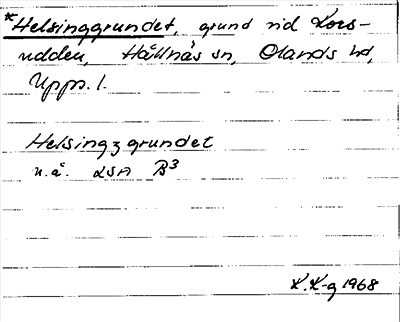 *Helsinggrundet, grund vid Kors-
udden, Hållnäs sn, Olands hd,
Upps. l.
Helsingz grundet
u.å. LSA B3
K.K-g 1968